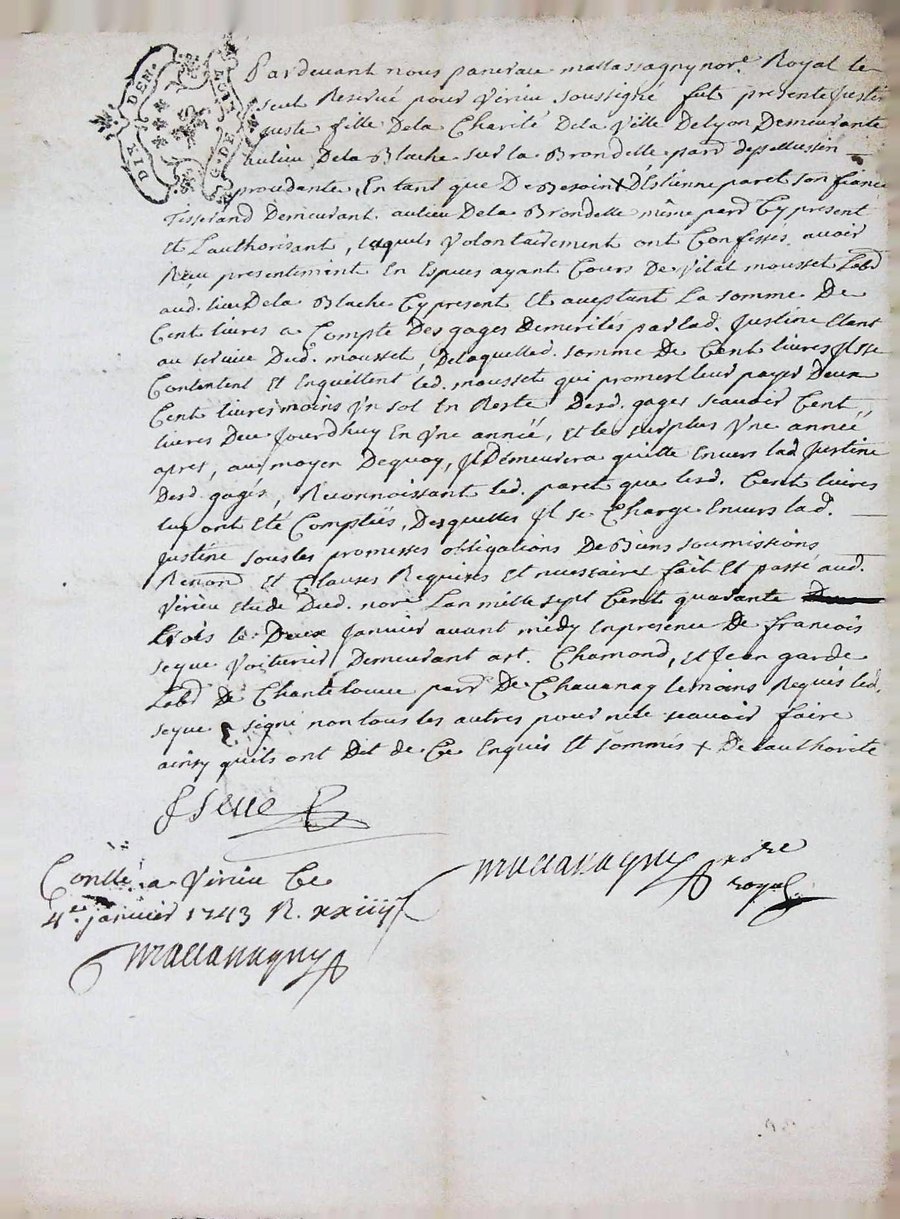 DIX DEN.
G. DE LION
Pardevant nous pancrace mattassagny nore. Royal le
seul Reservé pour Virieu soussigné fut presente Justine
juste fille Dela Charité Dela Ville Delyon Demeurante
aulieu Dela Blache sur la Brondelle parr. depellussin
procedante, En tant que De Besoin + D'Estienne paret son fiancé
Tisserand Demeurant aulieu Dela Brondelle même parr. Cy present
Et L'authorisant, lequels Volontairement ont Confessés avoir
Reçu presentement En Especes ayant Cours De Vital mousset Labr.
aud. lieu Dela Blache Cy present Et acceptant La somme De
Cent livres a Compte Des gages Demerités par lad. Justine Etant
au service Dud. mousset, Delaquelle d. somme De Cent livres Il se
Contentent Et Enquittent led. mousset qui promest leur payer Deux
Cent livres moins Vn sol En Reste Desd. gages scavoir Cent
livres Deu Jourdhuy En Vne année, Et le surplus Vne année
apres, au moyen Dequoy, Il Demeurera quitte Envers lad. Justine
Desd. gages, Reconnoissant led. paret que lesd. Cent livres
luy ont Eté Comptées, Desquelles Il se Charge Envers lad.
Justine sous les promesses obligations De Biens soumissions
Renon. Et Clauses Requises Et necessaires fait Et passé aud.
Virieu Etude Dud. nore. Lan mille sept Cent quarante
trois le Deux Janvier avant midy En presence De francois
seyve Voiturier Demeurant a st. Chamond, Et Jean garde
Labr. De Chantelouve parr. De Chavanay temoins Requis led.
seyve signé non tous les autres pour n'etre scavoir faire
ainsy quils ont Dit de Ce Enquis Et sommés + De l'authorité
f seve
mattassagny nore
royal
Conllé a Virieu Ce
4e. janvier 1743 R. xxiiij s
mattassagny